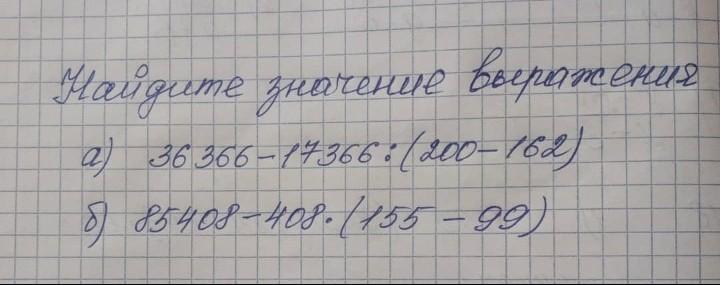 Найдите значение выражения
а) 36366-17366:(200-162)
б) 85408-408·(155-99)